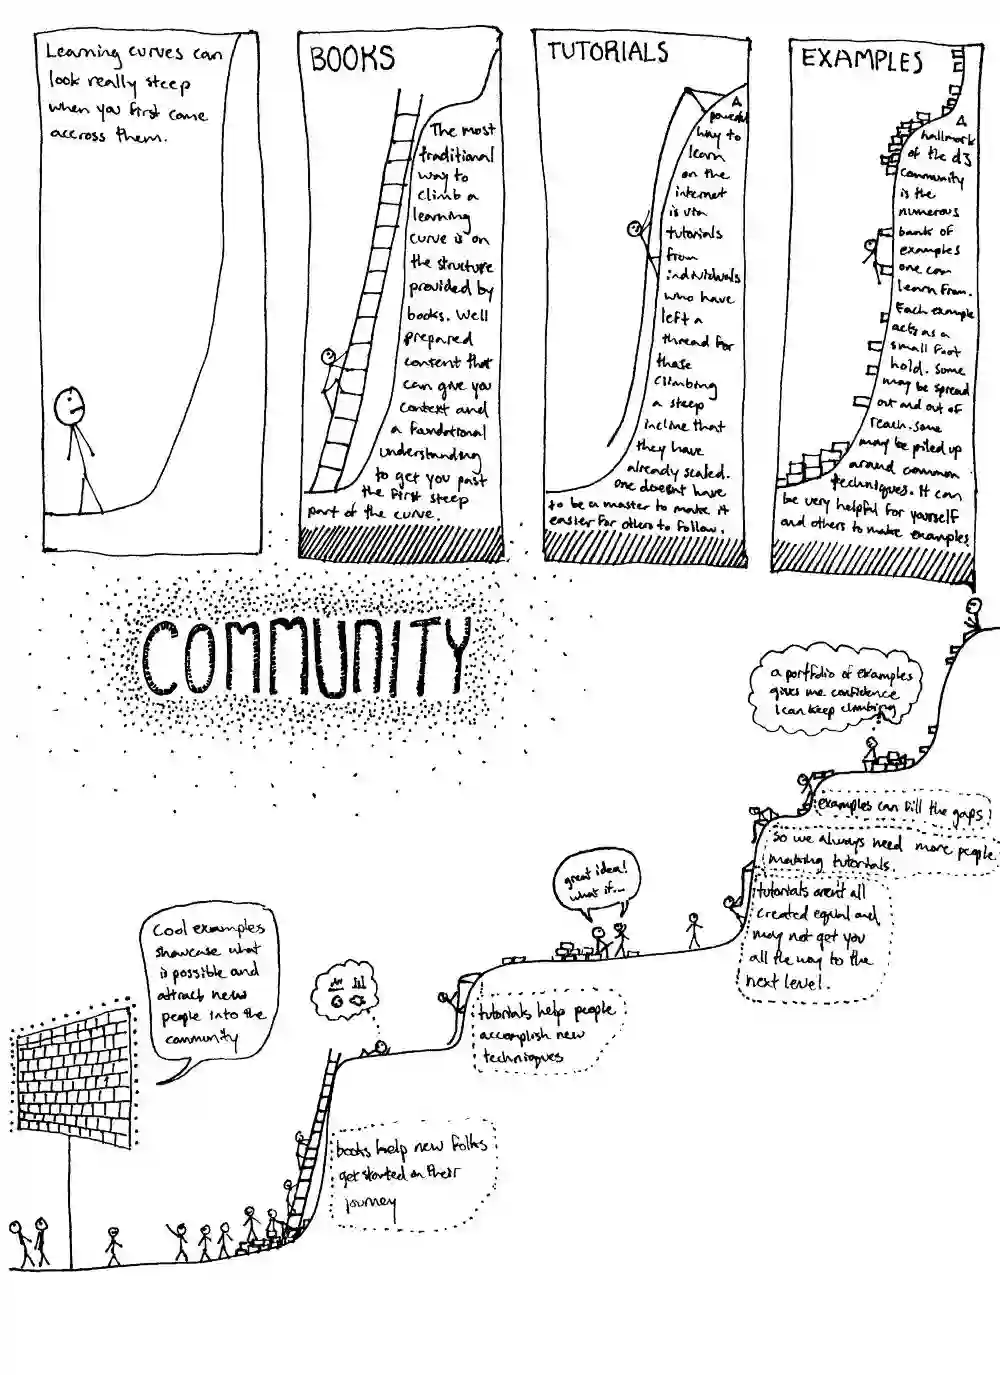 Learning curves can
look really steep
when you first come
accross them.
BOOKS
The most
traditional
way to
climb a
learning
curve is on
the structure
provided by
books. Well
prepared
content that
can give you
context and
a foundational
understanding
to get you past
the first steep
part of the curve.
TUTORIALS
A
powerful
way to
learn
on the
internet
is via
tutorials
from
individuals
who have
left a
thread for
those
climbing
a steep
incline that
they have
already scaled.
one doesnt have
to be a master to make it
easier for others to follow.
EXAMPLES
A
hallmark
of the d3
community
is the
numerous
bank of
examples
one can
learn from.
Each example
acts as a
small foot
hold. Some
may be spread
out and out of
reach. Some
may be piled up
around common
techniques. It can
be very helpful for yourself
and others to make examples
COMMUNITY
a portfolio of examples
gives me confidence
I can keep climbing
examples can fill the gaps
so we always need more people
making tutorials.
tutorials arent all
created equal and
may not get you
all the way to the
next level.
great idea!
what if...
cool examples
showcase what
is possible and
attract new
people into the
community
tutorials help people
accomplish new
techniques
books help new folks
get started on their
journey